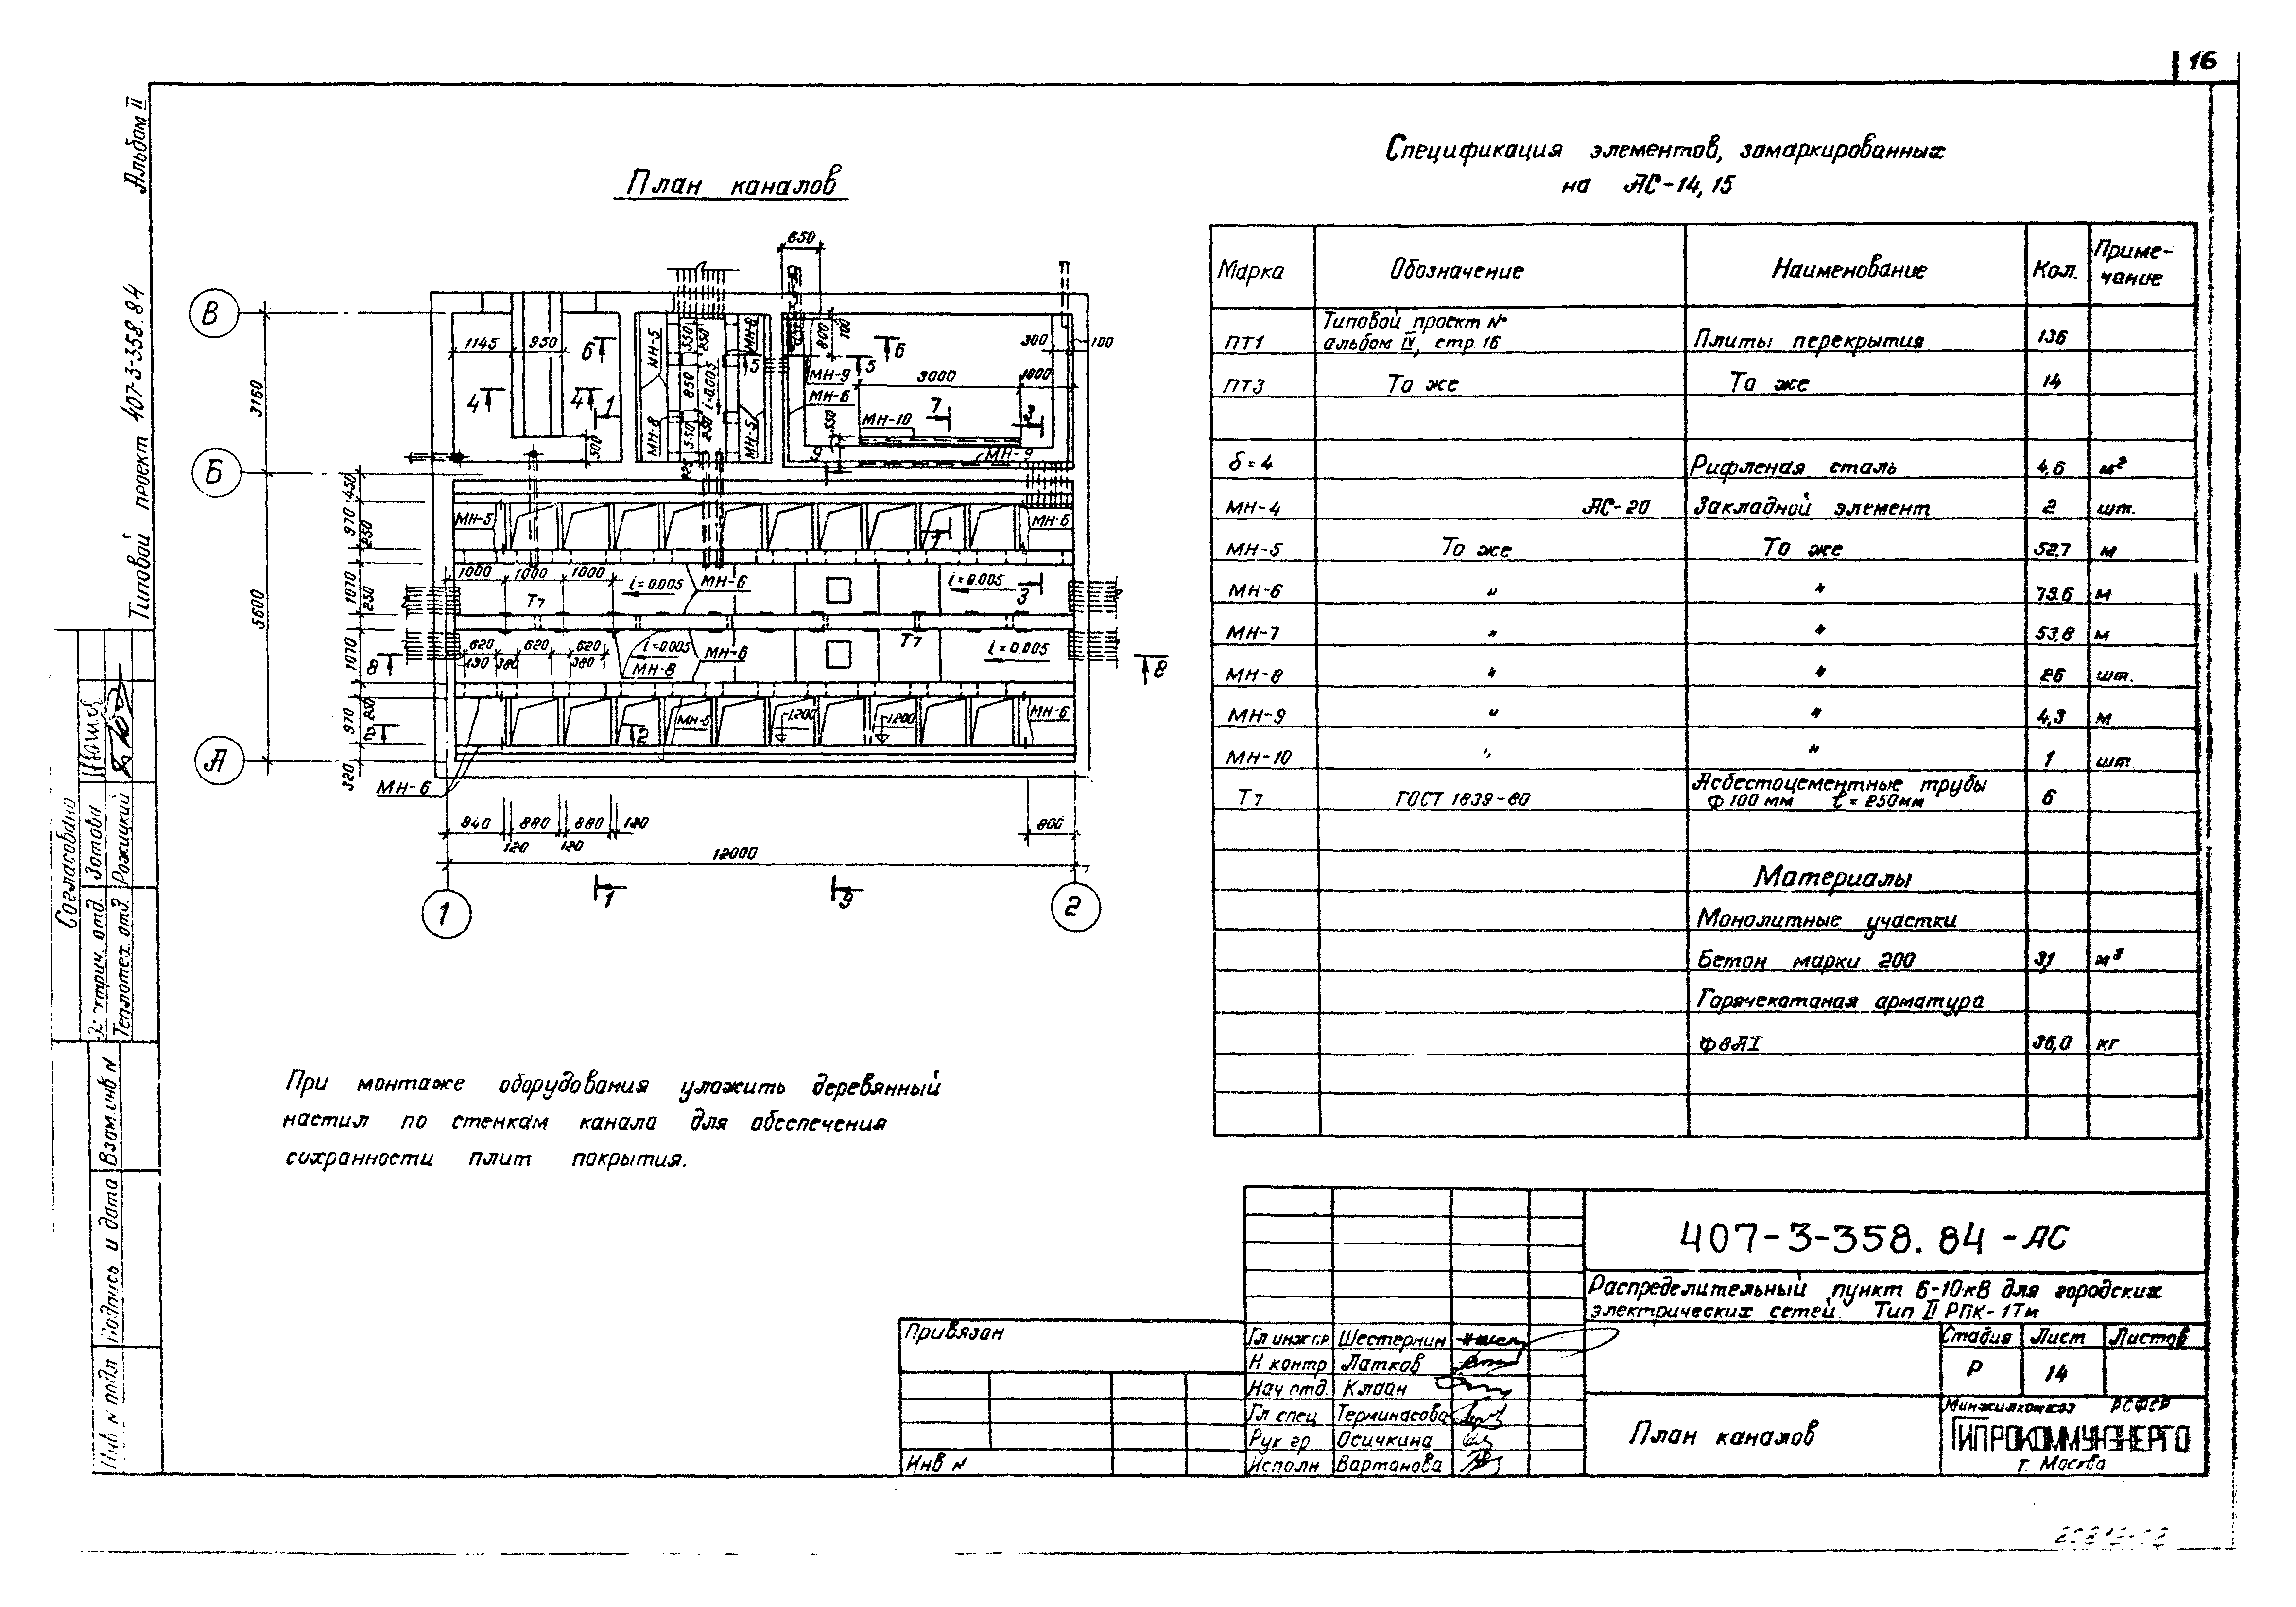 16
Альбом II
Типовой проект 407-3-358.84
План каналов
650
В
Б
А
3160
5600
1145
950
500
МН-5
МН-8
550
850
550
250
i=0.005
МН-8
МН-5
800
100
300
100
МН-9
МН-6
3000
1000
МН-10
550
МН-9
450
970
250
1070
250
1070
970
250
320
МН-5
МН-6
1000
1000
1000
i=0.005
МН-6
i=0.005
Т7
620
620
620
190
380
380
i=0.005
МН-6
МН-8
Т7
i=0.005
8
8
МН-5
-1.200
-1.200
МН-6
МН-6
840
880
880
120
120
120
800
12000
1
9
1
2
При монтаже оборудования уложить деревянный
настил по стенкам канала для обеспечения
сохранности плит покрытия.
Спецификация элементов, замаркированных
на АС-14,15
Марка Обозначение Наименование Кол. Приме-
чание
ПТ1 Типовой проект №
альбом IV, стр. 16 Плиты перекрытия 136
ПТ3 То же То же 14
δ=4 Рифленая сталь 4,6 м²
МН-4 АС-20 Закладной элемент 2 шт.
МН-5 То же То же 52.7 м
МН-6 " " 79.6 м
МН-7 " " 53,8 м
МН-8 " " 26 шт.
МН-9 " " 4,3 м
МН-10 " " 1 шт.
Т7 ГОСТ 1839-80 Асбестоцементные трубы
Ф 100 мм ℓ = 250мм 6
Материалы
Монолитные участки
Бетон марки 200 31 м³
Горячекатаная арматура
Ф8АI 36,0 кг
407-3-358.84-АС
Распределительный пункт 6-10кВ для городских
электрических сетей. Тип II РПК-1Тм
Стадия Лист Листов
Р 14
План каналов
Минжилкомхоз РСФСР
ГИПРОКОММУНЭНЕРГО
г. Москва
Привязан
Инв N
Гл инж пр Шестернин
Н контр Латков
Нач отд. Клаан
Гл спец Терминасова
Рук гр Осичкина
Исполн Вартанова
Согласовано
Электрич. отд. Зотова
Теплотех. отд. Рожицкий
Взам. инв N
Подпись и дата
Инв N подл